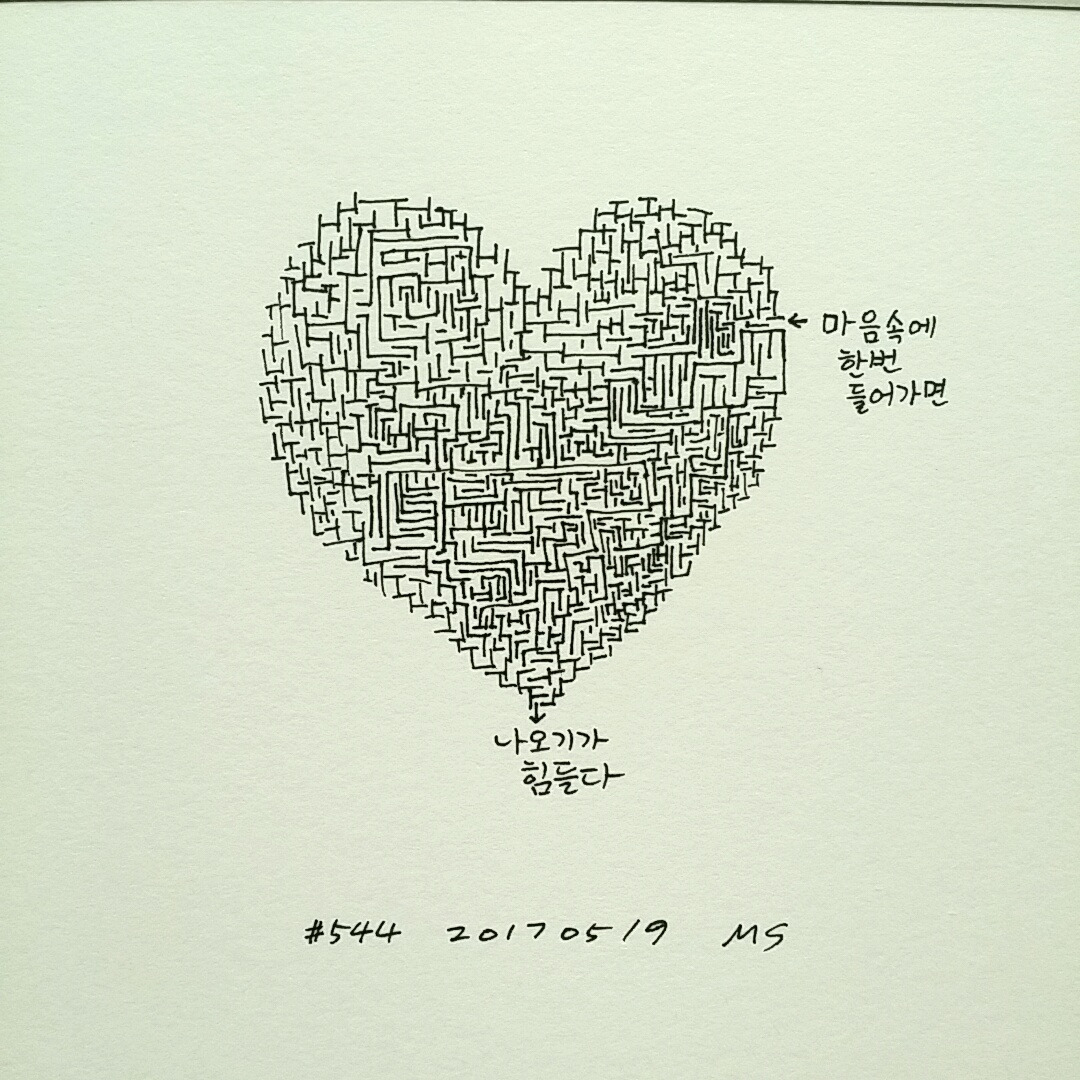 마음속에
한번
들어가면
나오기가
힘들다
#544 20170519 MS